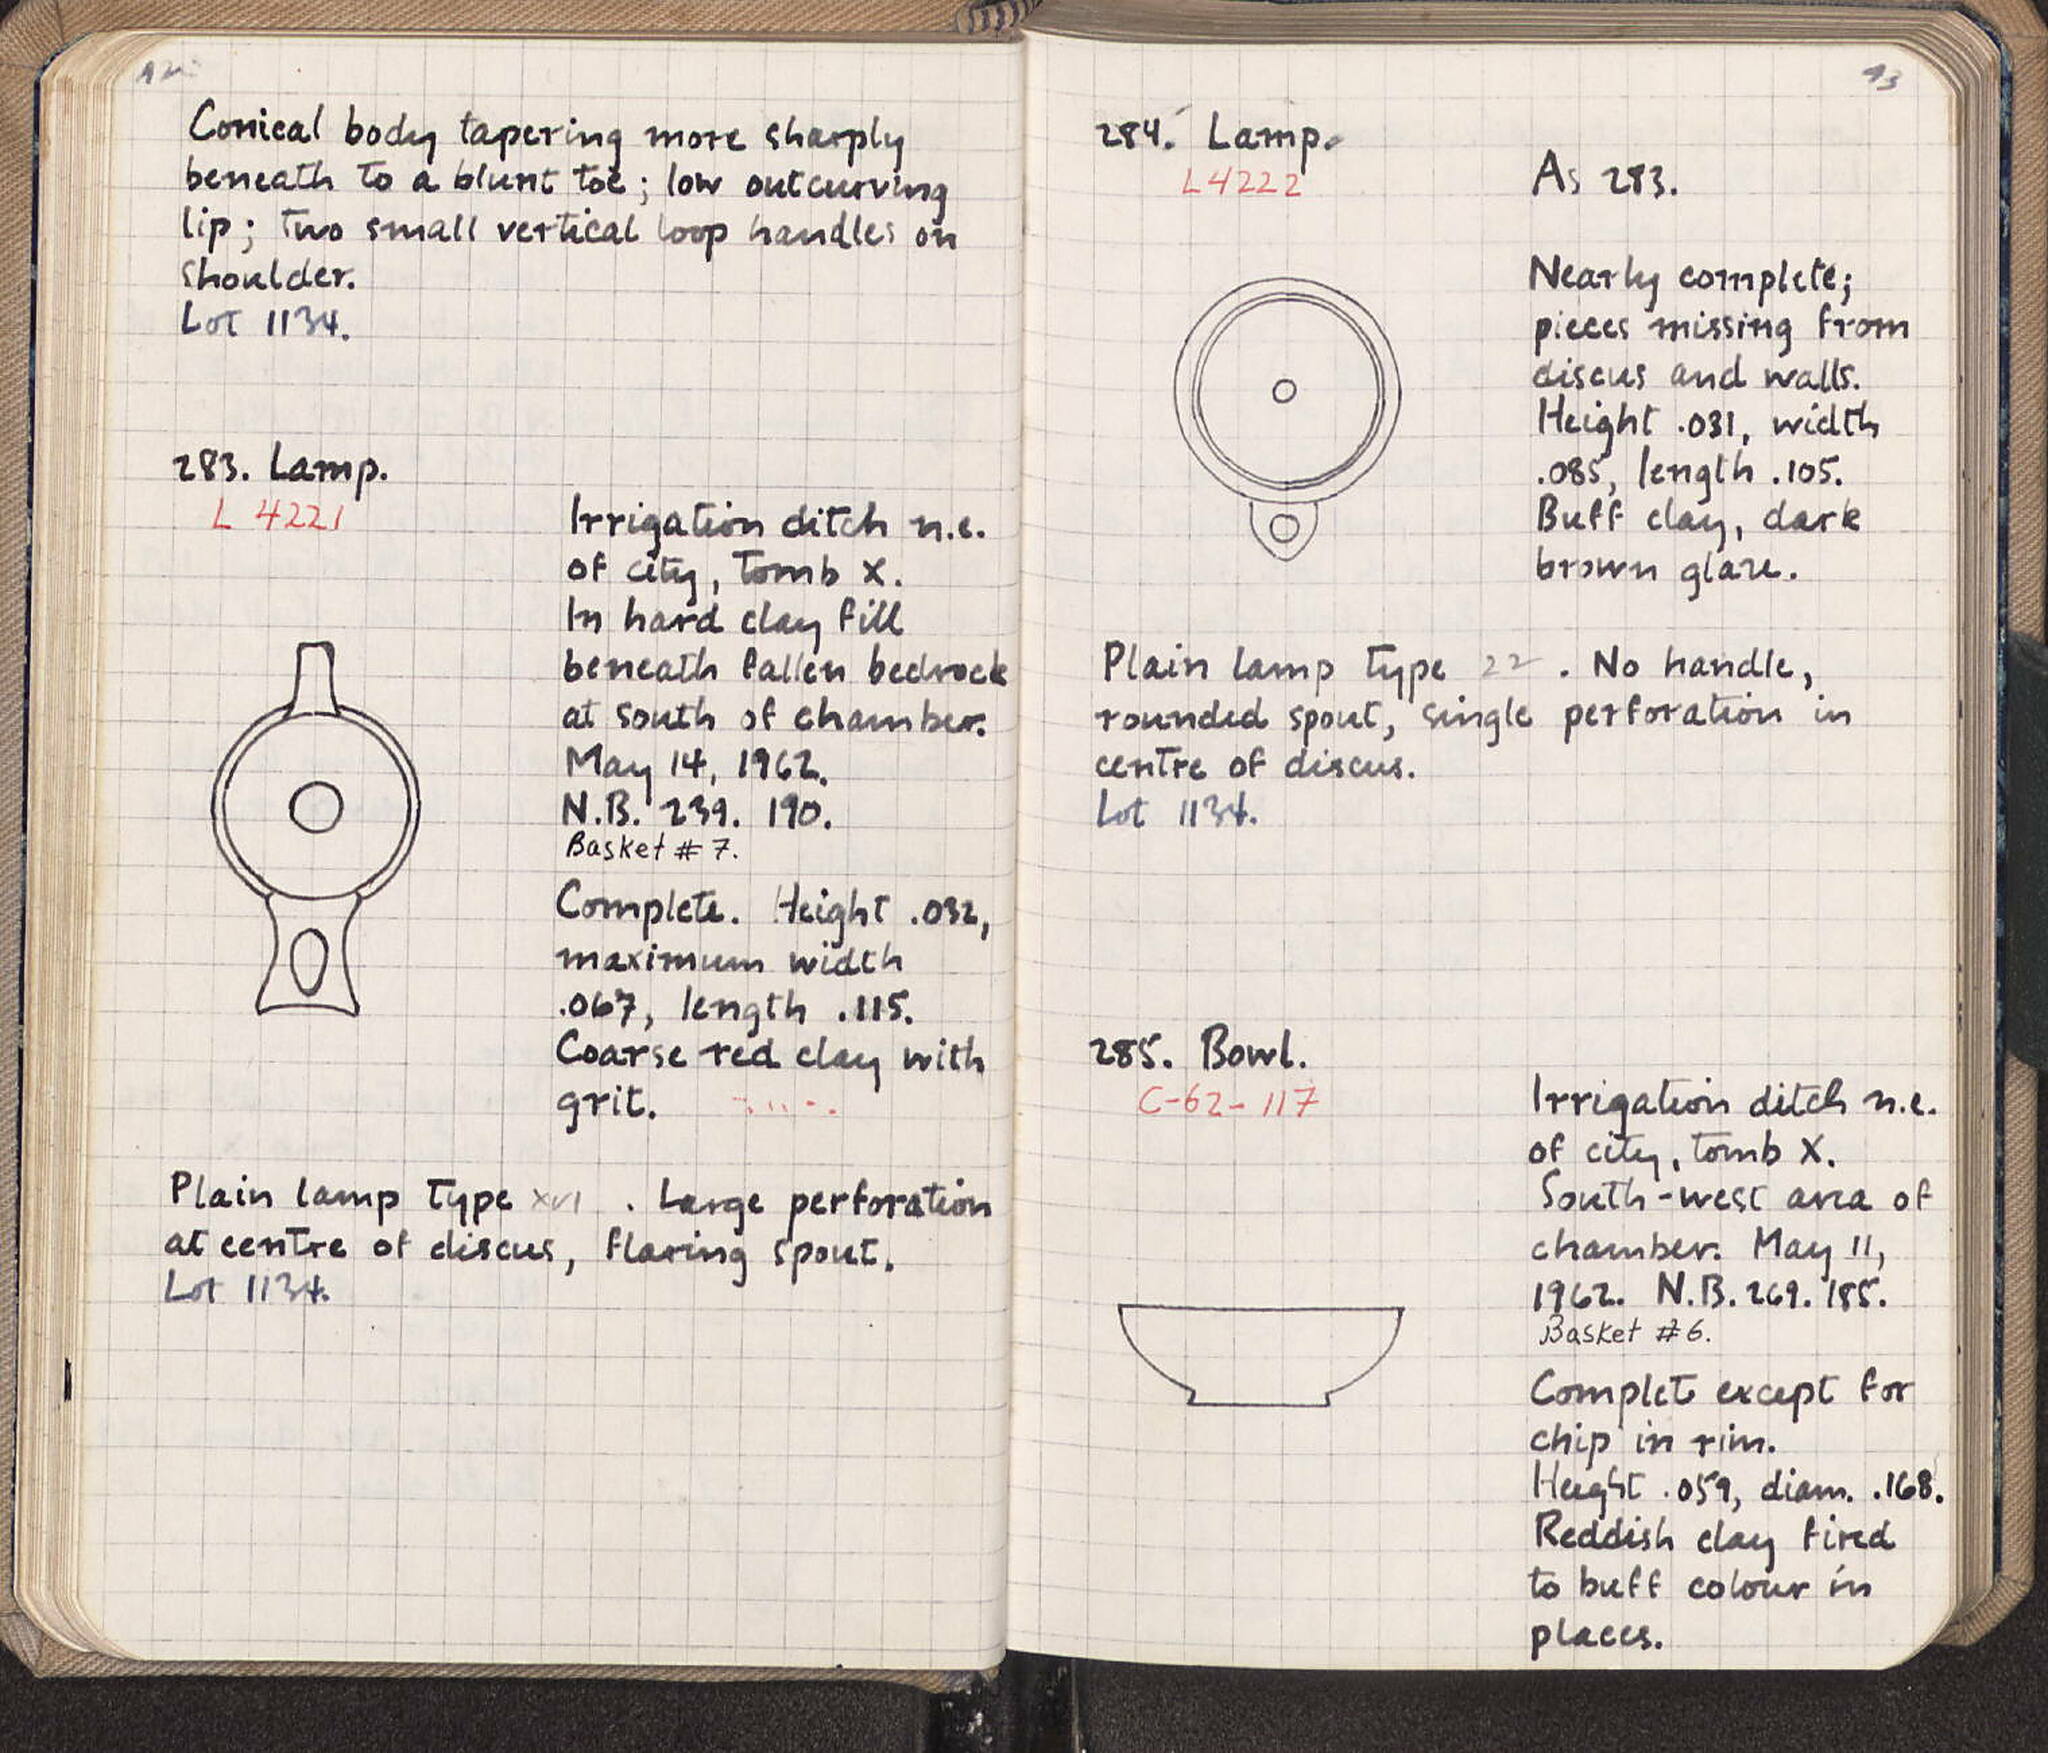 Conical body tapering more sharply
beneath to a blunt toe; low outcurving
lip; two small vertical loop handles on
shoulder.
Lot 1134.
283. Lamp.
L 4221
Irrigation ditch n.e.
of city, Tomb X.
In hard clay fill
beneath fallen bedrock
at south of chamber.
May 14, 1962.
N.B. 239. 190.
Basket # 7.
Complete. Height .032,
maximum width
.067, length .115.
Coarse red clay with
grit.
Plain lamp type XVI . Large perforation
at centre of discus, flaring spout.
Lot 1134.
284. Lamp.
L 4222
As 283.
Nearly complete;
pieces missing from
discus and walls.
Height .031, width
.085, length .105.
Buff clay, dark
brown glaze.
Plain lamp type 22 . No handle,
rounded spout, single perforation in
centre of discus.
Lot 1134.
285. Bowl.
C-62-117
Irrigation ditch n.e.
of city, tomb X.
South-west area of
chamber. May 11,
1962. N.B. 269. 185.
Basket #6.
Complete except for
chip in rim.
Height .059, diam. .168.
Reddish clay fired
to buff colour in
places.